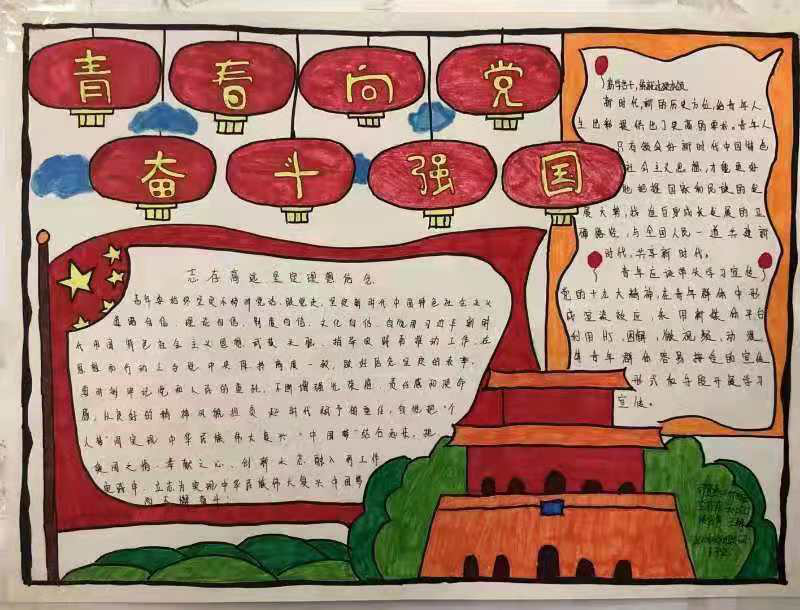 青春向党
奋斗强国
志存高远坚定理想信念
青年要始终坚定不移听党话、跟党走,坚定新时代中国特色社会主义
道路自信、理论自信、制度自信、文化自信,自觉用习近平新时
代中国特色社会主义思想武装头脑、指导实践和推动工作,在
思想和行动上与党中央保持高度一致,做好
要时刻牢记党和人民的重托,不断增强光荣感、责任感和使命
感,以良好的精神风貌担负起时代赋予的重任,自觉把"个
人梦"同实现中华民族伟大复兴"中国梦"结合起来,把
爱国之情、奉献之心、创新之志融入到工作
实践中,立志为实现中华民族伟大复兴中国梦
而不懈奋斗!
新时代,新的历史方位,给青年人
生也提供出了更高的要求。青年人
只有领会好新时代中国特色
社会主义思想,才能更好
地把握国家和民族的发
展大势,找准自身成长发展的正
确路径,与全国人民一道共建新
时代,共享新时代。
青年应该带头学习宣传
党的十九大精神,在青年群体中形
成宣传效应,采用新媒体平台
利用H5,图解,微视频,动漫
等青年群体容易接受的宣传
形式和手段开展学习
宣传。